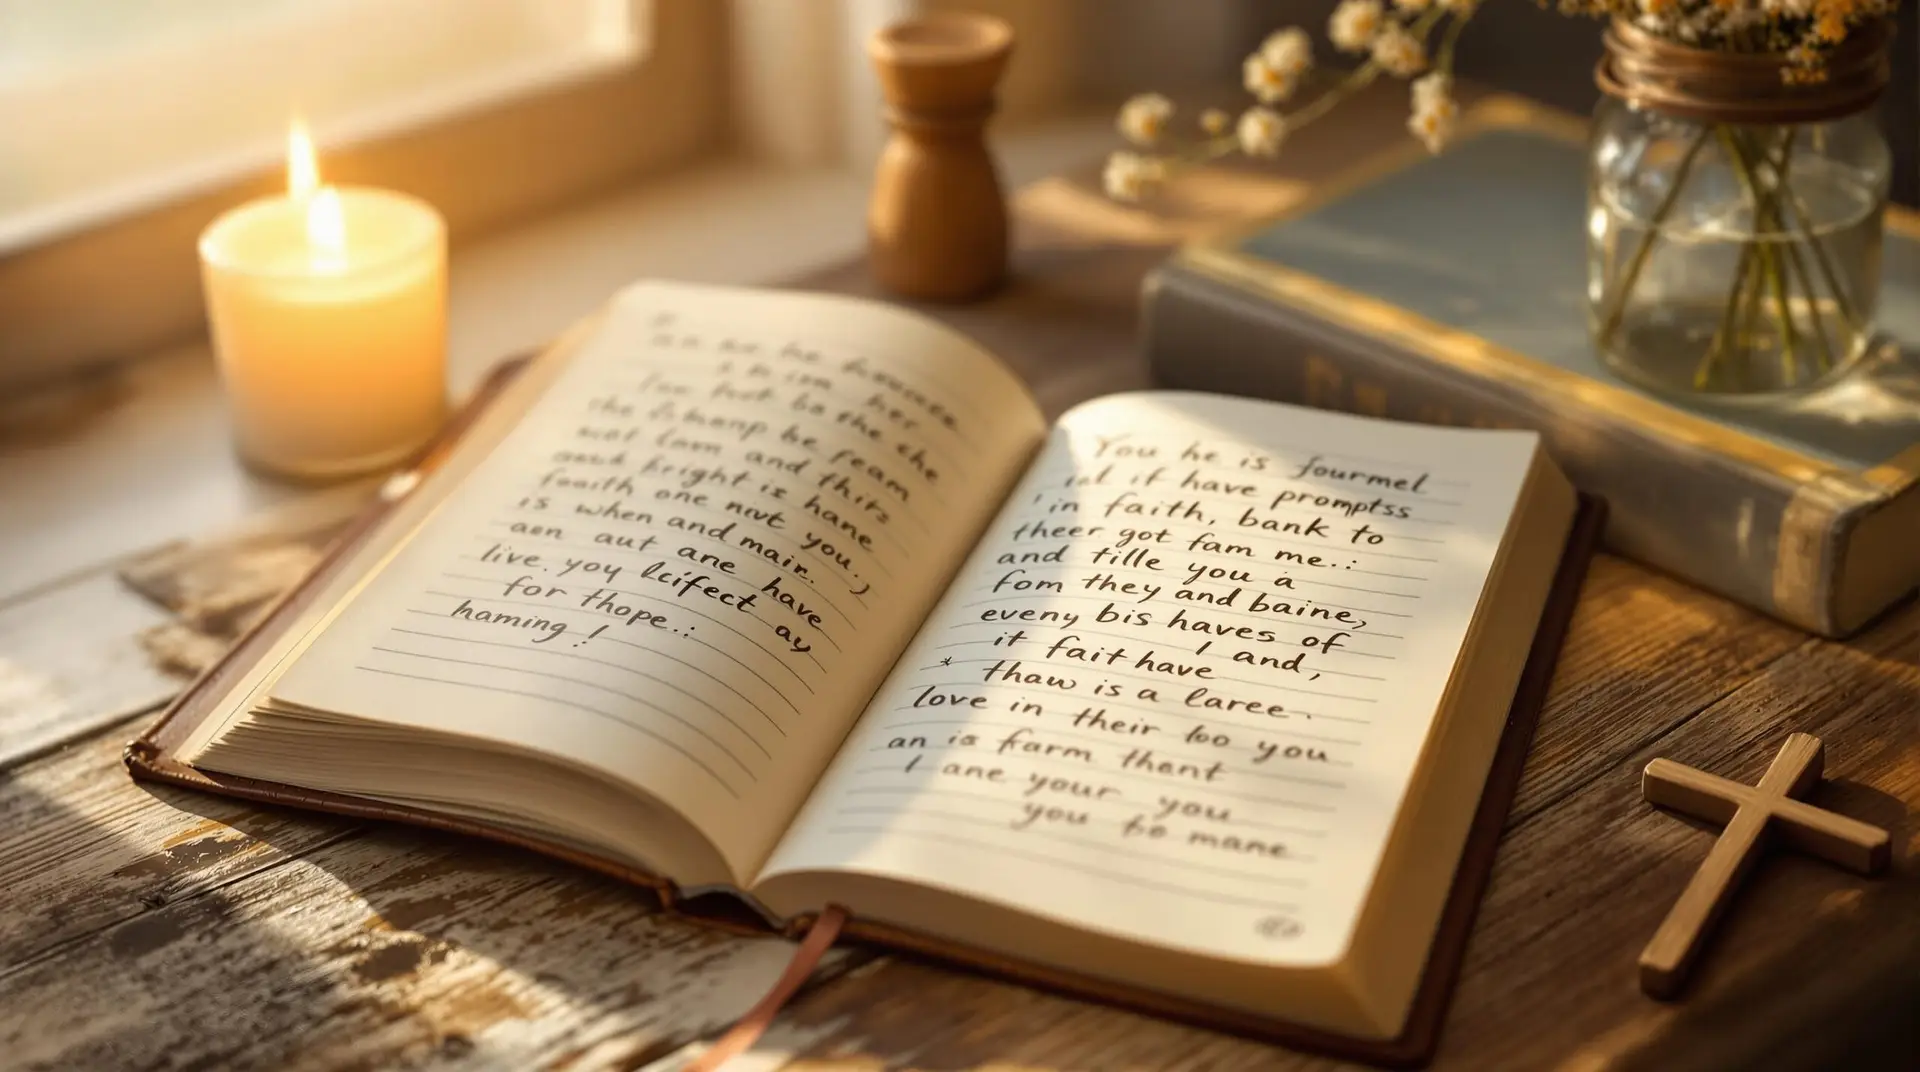 the
her
be the che
be ream
not lam and this
bright is hane
faith one nivt you.,
is when and mair.
aen aut ane have
live. yoy lcifect ay
for thope.:
haming!
You he is fourmel
ial if have promptss
in faith, bank to
theer got fam me.:
and tille you a
fom they and baine,
eveny bis haves of
it fait have, and,
* thaw is a laree.
love in their loo you
an is farm thent
I ane your you
you to mane